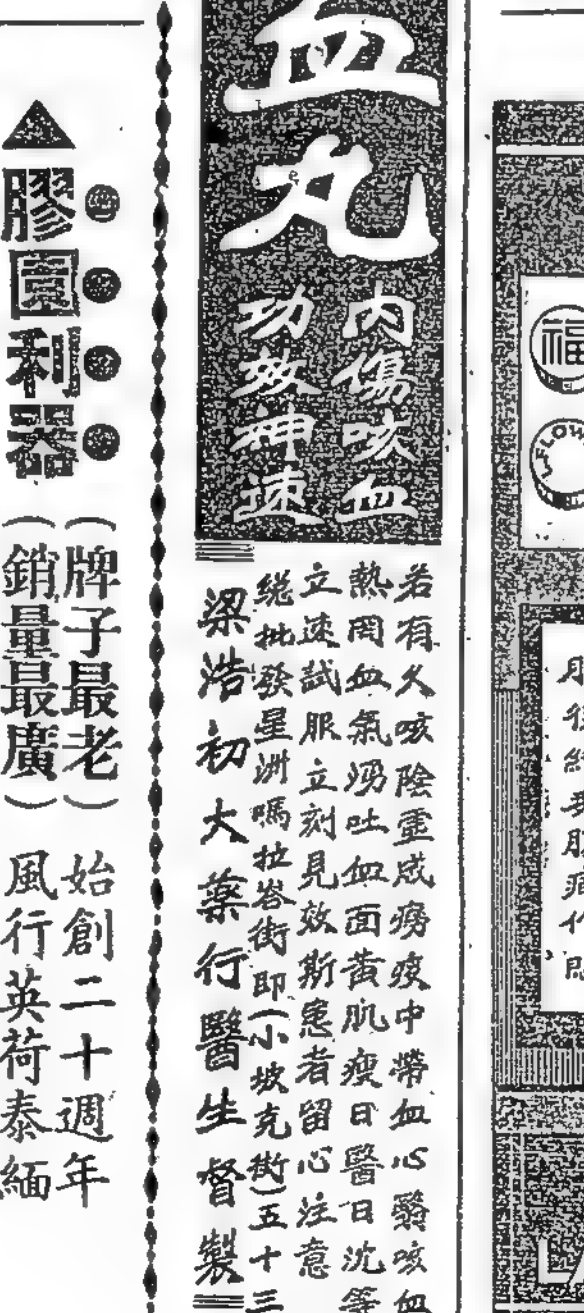 福
FLOW
血丸
內傷咳血
功效神速
若有久咳陰虛成癆痰中帶血心翳咳血
熱悶血氣湧吐血面黃肌瘦日醫日沉等
立速試服立刻見效斯患者留心注意
總批發星洲嗎拉峇街即(小坡克街)五十三
梁浩初大藥行醫生督製
▲膠園利器
(牌子最老)始創二十週年
(銷量最廣)風行英荷泰緬